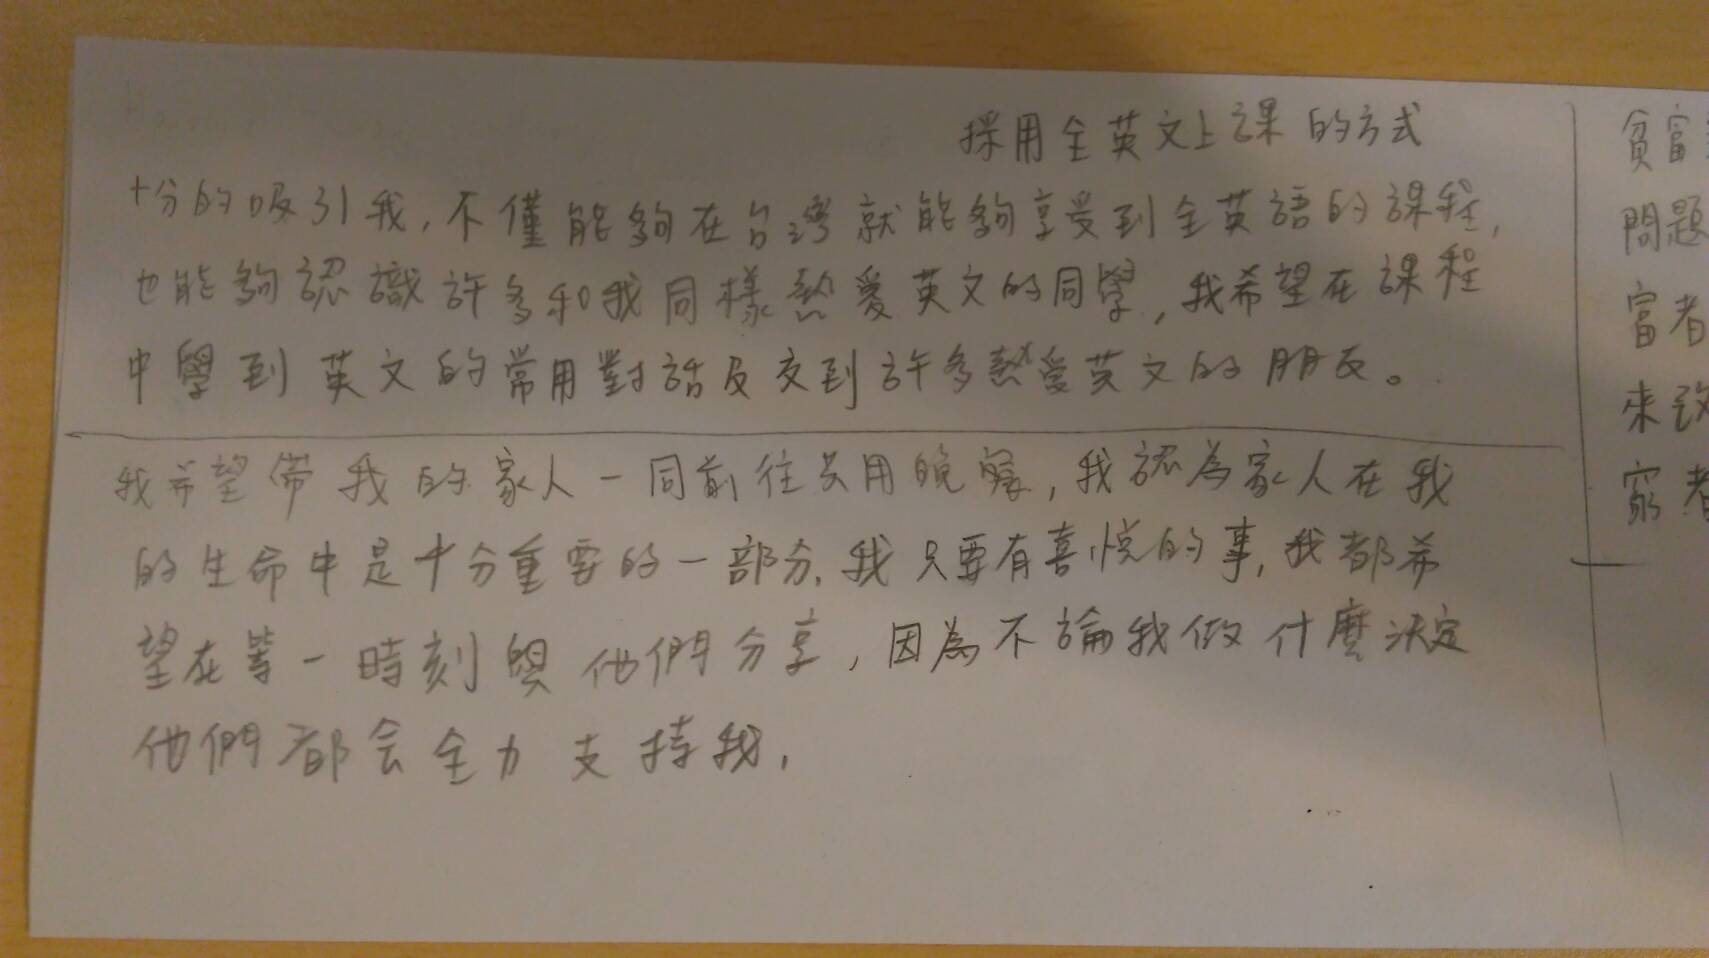 採用全英文上課的方式
十分的吸引我,不僅能夠在台灣就能夠享受到全英語的課程,
也能夠認識許多和我同樣熱愛英文的同學,我希望在課程
中學到英文的常用對話及交到許多熱愛英文的朋友。
我希望帶我的家人一同前往共用晚餐,我認為家人在我
的生命中是十分重要的一部分,我只要有喜悅的事,我都希
望在第一時刻與他們分享,因為不論我做什麼決定
他們都会全力支持我,
貧富
問題
富者
來改
窮者